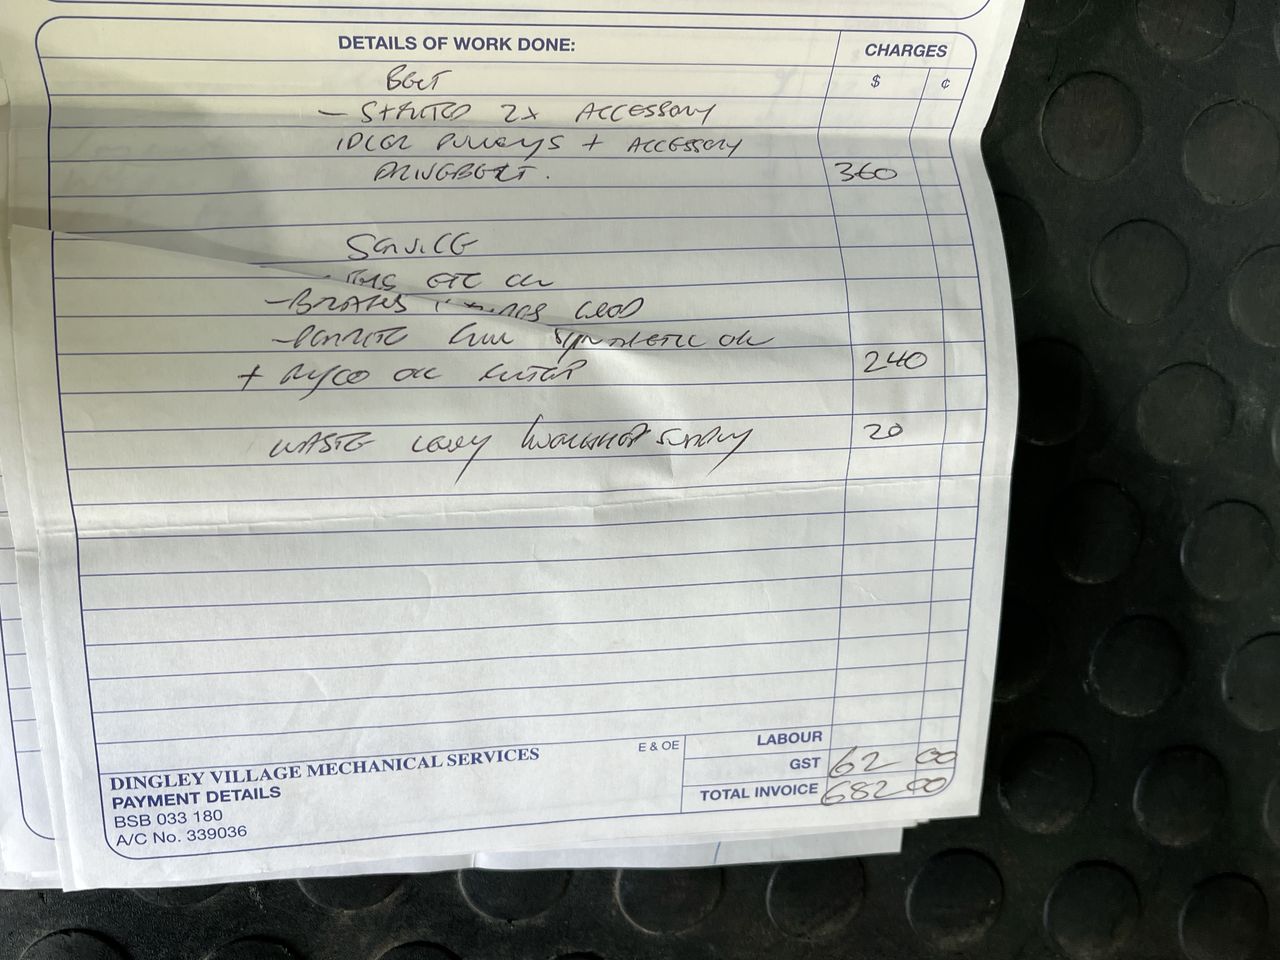 DETAILS OF WORK DONE:
CHARGES
$ ¢
BELT
2x ACCESSORY
IDLER PULLEYS + ACCESSORY
DRIVEBELT. 360
SERVICE
ETC OK
- BRAKES GOOD
SYNTHETIC OIL
+ RYCO OIL FILTER 240
WASTE LEVY WORKSHOP SUPPLY 20
LABOUR
GST 62 00
TOTAL INVOICE 682 00
E & OE
DINGLEY VILLAGE MECHANICAL SERVICES
PAYMENT DETAILS
BSB 033 180
A/C No. 339036